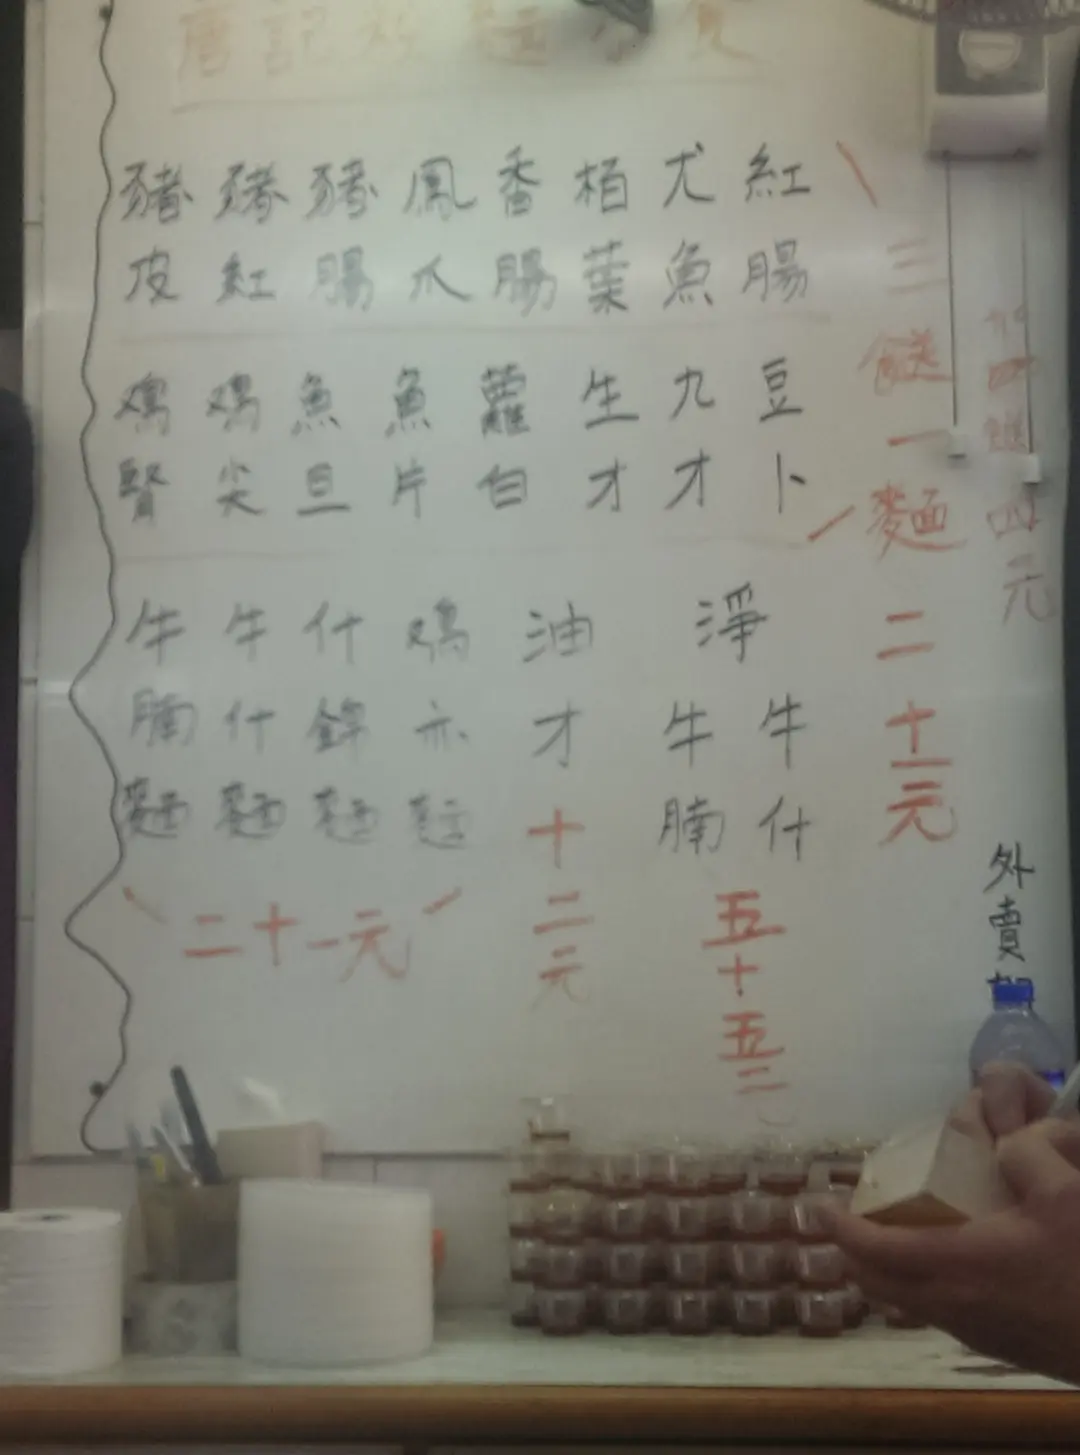 紅腸
尤魚
栢葉
香腸
鳳爪
豬腸
豬紅
豬皮
豆卜
九才
生才
蘿白
魚片
魚旦
鸡尖
鸡腎
三餸一麵二十元
加四餸四元
淨
牛什
牛腩
五十五元
油才
十二元
鸡亦麵
什錦麵
牛什麵
牛腩麵
二十一元
外賣